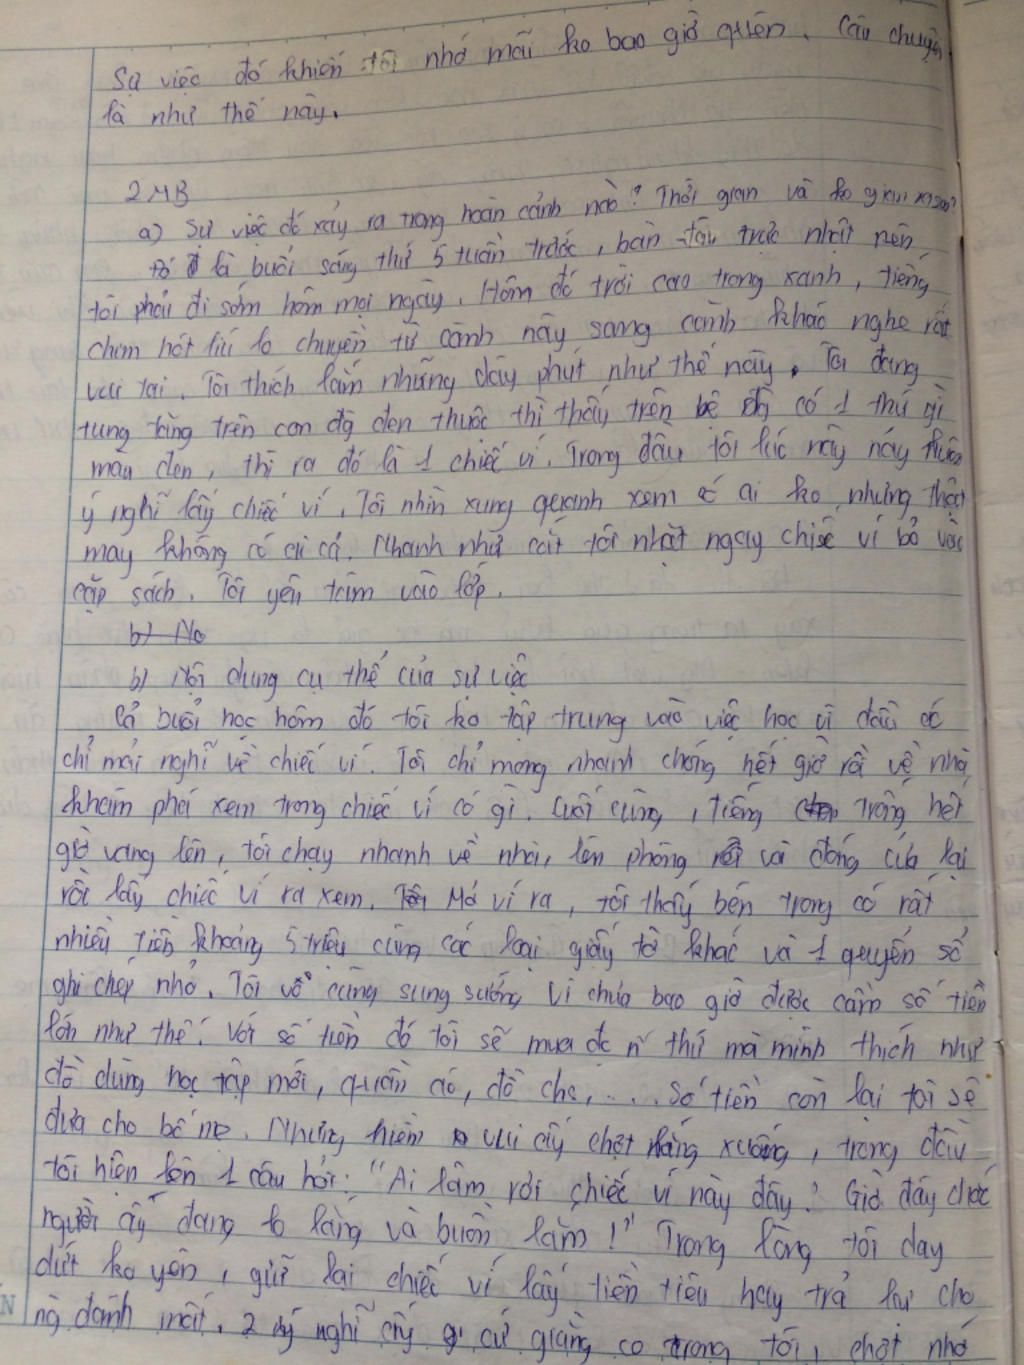 Sự việc đó khiến tôi nhớ mãi ko bao giờ quên. Câu chuyện
là như thế này.
2 MB
a) Sự việc đó xảy ra trong hoàn cảnh nào? Thời gian và ko gian ra sao?
Đó là buổi sáng thứ 5 tuần trước, bàn tôi trực nhật nên
tôi phải đi sớm hôm mọi ngày. Hôm đó trời cao trong xanh, tiếng
chim hót líu lo chuyền từ cành này sang cành khác nghe rất
vui tai. Tôi thích lắm những dây phút như thế này. Tôi đang
tung tăng trên con đg đen thuộc thì thấy trên bệ đg có 1 thứ gì
màu đen, thì ra đó là 1 chiếc ví. Trong đầu tôi lúc này nảy
ý nghĩ lấy chiếc ví. Tôi nhìn xung quanh xem có ai ko, nhưng thật
may không có ai cả. Nhanh như cắt tôi nhặt ngay chiếc ví bỏ vào
cặp sách. Tôi yên tâm vào lớp.
b) No
b) Nội dung cụ thể của sự việc
Cả buổi học hôm đó tôi ko tập trung vào việc học vì đầu óc
chỉ mải nghĩ về chiếc ví. Tôi chỉ mong nhanh chóng hết giờ rồi về nhà
khám phá xem trong chiếc ví có gì. Cuối cùng, tiếng trống hết
giờ vang lên, tôi chạy nhanh về nhà, lên phòng và đóng cửa lại
rồi lấy chiếc ví ra xem. Mở ví ra, tôi thấy bên trong có rất
nhiều tiền khoảng 5 triệu cùng các loại giấy tờ khác và 1 quyển sổ
ghi chép nhỏ. Tôi vô cùng sung sướng vì chưa bao giờ được cầm số tiền
lớn như thế. Với số tiền đó tôi sẽ mua đc n thứ mà mình thích như
đồ dùng học tập mới, quần áo, đồ chs,.... Số tiền còn lại tôi sẽ
đưa cho bố mẹ. Nhưng niềm vui ấy chợt lắng xuống, trong đầu
tôi hiện lên 1 câu hỏi: "Ai làm rơi chiếc ví này đây? Giờ đây chắc
người ấy đang lo lắng và buồn lắm!" Trong lòng tôi day
dứt ko yên, giữ lại chiếc ví lấy tiền tiêu hay trả lại cho
ng đánh mất. 2 ý nghĩ ấy cứ giằng co trong tôi, chợt nhớ